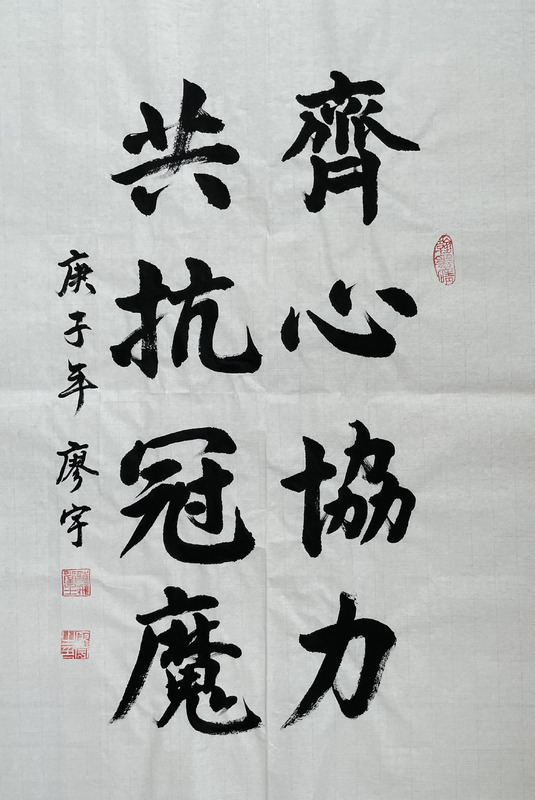 齊心協力
共抗冠魔
庚子年 廖宇